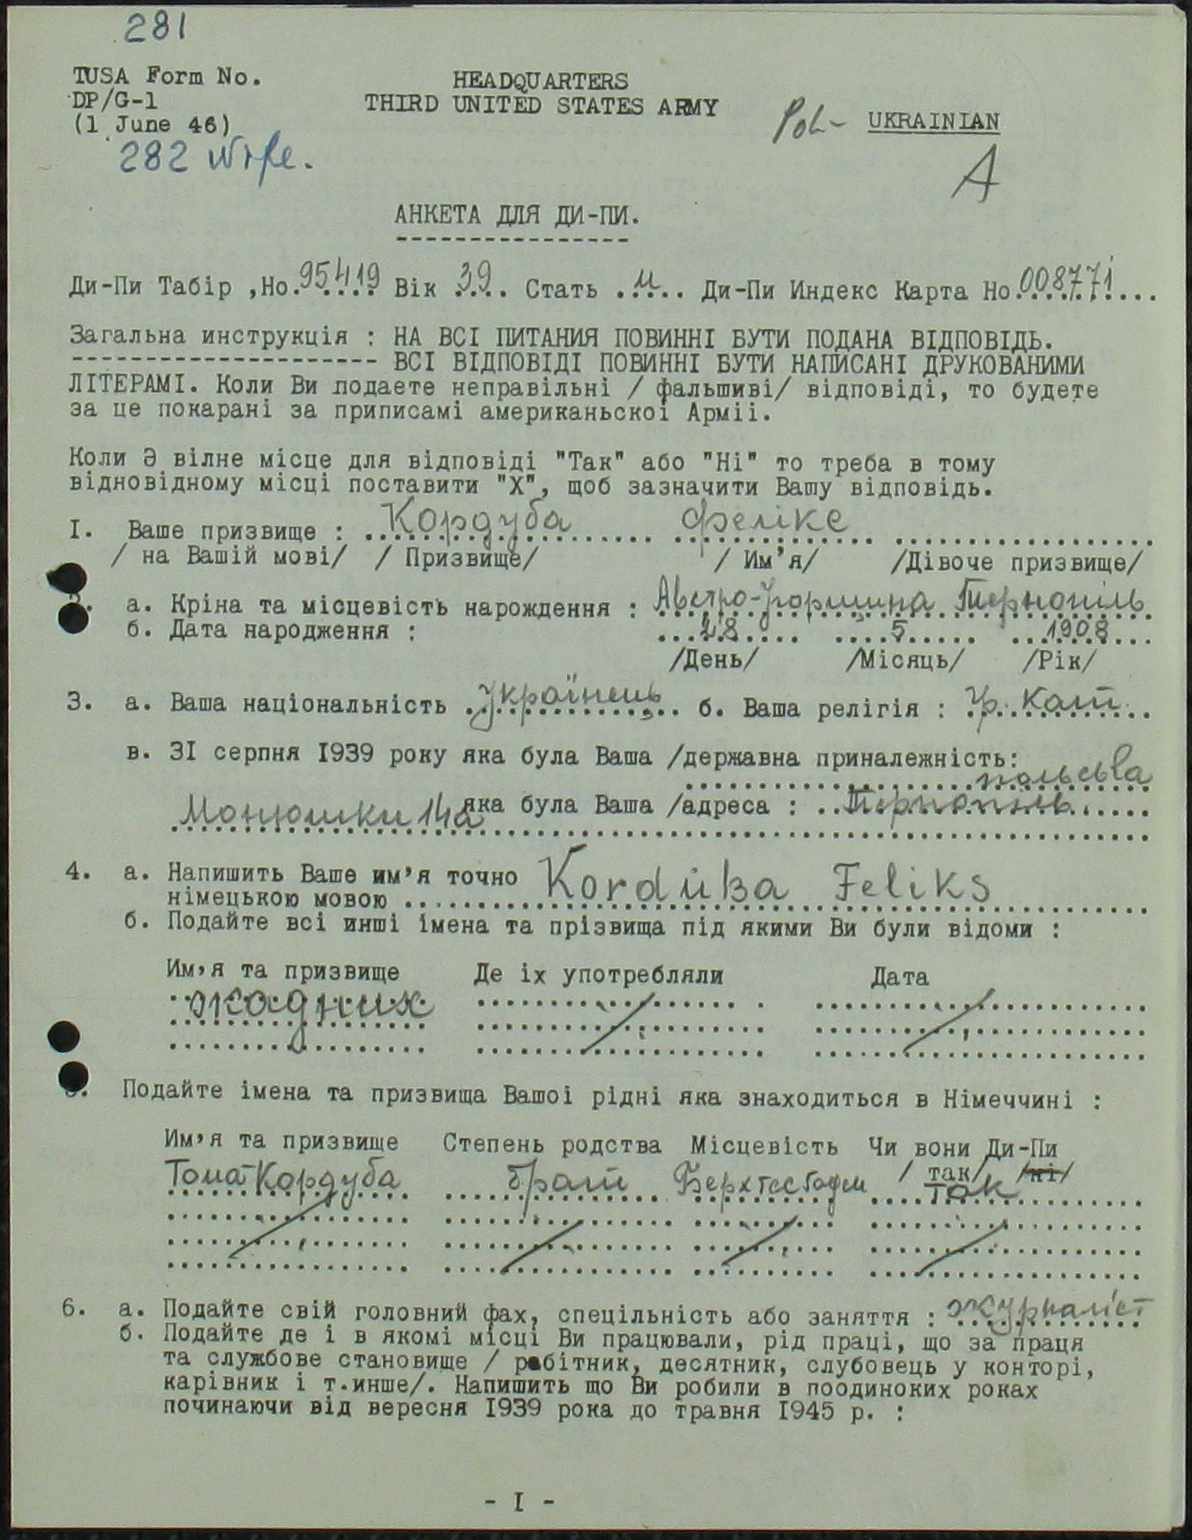 281
TUSA Form No. HEADQUARTERS
DP/G-1 THIRD UNITED STATES ARMY
(1 June 46) Pol- UKRAINIAN
282 wife. A
АНКЕТА ДЛЯ ДИ-ПИ.
Ди-Пи Табір ,Но. 95419 Вік 39 Стать м Ди-Пи Индекс Карта Но. 008771
Загальна инструкція : НА ВСІ ПИТАНИЯ ПОВИННІ БУТИ ПОДАНА ВІДПОВІДЬ.
ВСІ ВІДПОВІДІ ПОВИННІ БУТИ НАПИСАНІ ДРУКОВАНИМИ
ЛІТЕРАМІ. Коли Ви подаете неправільні / фальшиві/ відповіді, то будете
за це покарані за приписамі американьскоі Арміі.
Коли Э вілне місце для відповіді "Так" або "Ні" то треба в тому
відновідному місці поставити "Х", щоб зазначити Вашу відповідь.
I. Ваше призвище : Кордуба Фелікс
/ на Вашій мові/ / Призвище/ / Им'я/ /Дівоче призвище/
а. Кріна та місцевість нарождення : Австро-Угорщина Тернопіль
б. Дата народження : 28 5 1908
/День/ /Місяць/ /Рік/
3. а. Ваша національність Українець б. Ваша релігія : Гр. Кат.
в. 3I серпня I939 року яка була Ваша /державна приналежність:
польська
яка була Ваша /адреса : Тернопіль
Монюшки 14а
4. а. Напишить Ваше им'я точно Korduba Feliks
німецькою мовою
б. Подайте всі инші імена та прізвища під якими Ви були відоми :
Им'я та призвище Де іх употребляли Дата
жадних
5. Подайте імена та призвища Вашоі рідні яка знаходиться в Німеччині :
Им'я та призвище Степень родства Місцевість Чи вони Ди-Пи
/ так/ /ні/
Тома Кордуба брат Берхтесгаден так
6. а. Подайте свій головний фах, спецільність або заняття : журналіст
б. Подайте де і в якомі місці Ви працювали, рід праці, що за праця
та службове становище / рабітник, десятник, слубовець у конторі,
карівник і т.инше/. Напишить що Ви робили в поодиноких роках
починаючи від вересня I939 рока до травня I945 р. :
- I -